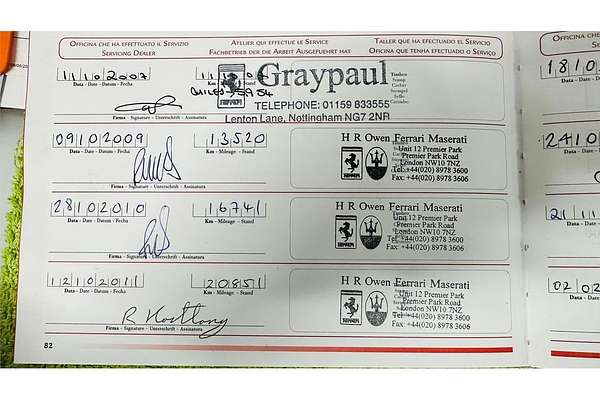 OFFICINA CHE HA EFFETTUATO IL SERVIZIO
SERVICING DEALER
ATELIER QUI EFFECTUE LE SERVICE
FACHBETRIEB DER DIE ARBEIT AUSGEFUEHRT HAT
TALLER QUE HA EFECTUADO EL SERVICIO
OFICINA QUE TENHA EFECTUADO O SERVIÇO
OFFICINA CHE
11102007
Data - Date - Datum - Fecha
Graypaul
TELEPHONE: 01159 833555
Lenton Lane, Nottingham NG7 2NR
Timbro
Stamp
Cachet
Stempel
Sello
Carimbo
Firma - Signature - Unterschrift - Assinatura
1810
09102009
Data - Date - Datum - Fecha
13520
Km - Mileage - Stand
Firma - Signature - Unterschrift - Assinatura
H R Owen Ferrari Maserati
Unit 12 Premier Park
Premier Park Road
London NW10 7NZ
Tel: +44(020) 8978 3600
Fax: +44(020) 8978 3606
2410
28102010
Data - Date - Datum - Fecha
16741
Km - Mileage - Stand
Firma - Signature - Unterschrift - Assinatura
H R Owen Ferrari Maserati
Unit 12 Premier Park
Premier Park Road
London NW10 7NZ
Tel: +44(020) 8978 3600
Fax: +44(020) 8978 3606
2111
12102011
Data - Date - Datum - Fecha
20851
Km - Mileage - Stand
Firma - Signature - Unterschrift - Assinatura
H R Owen Ferrari Maserati
Unit 12 Premier Park
Premier Park Road
London NW10 7NZ
Tel: +44(020) 8978 3600
Fax: +44(020) 8978 3606
020
82